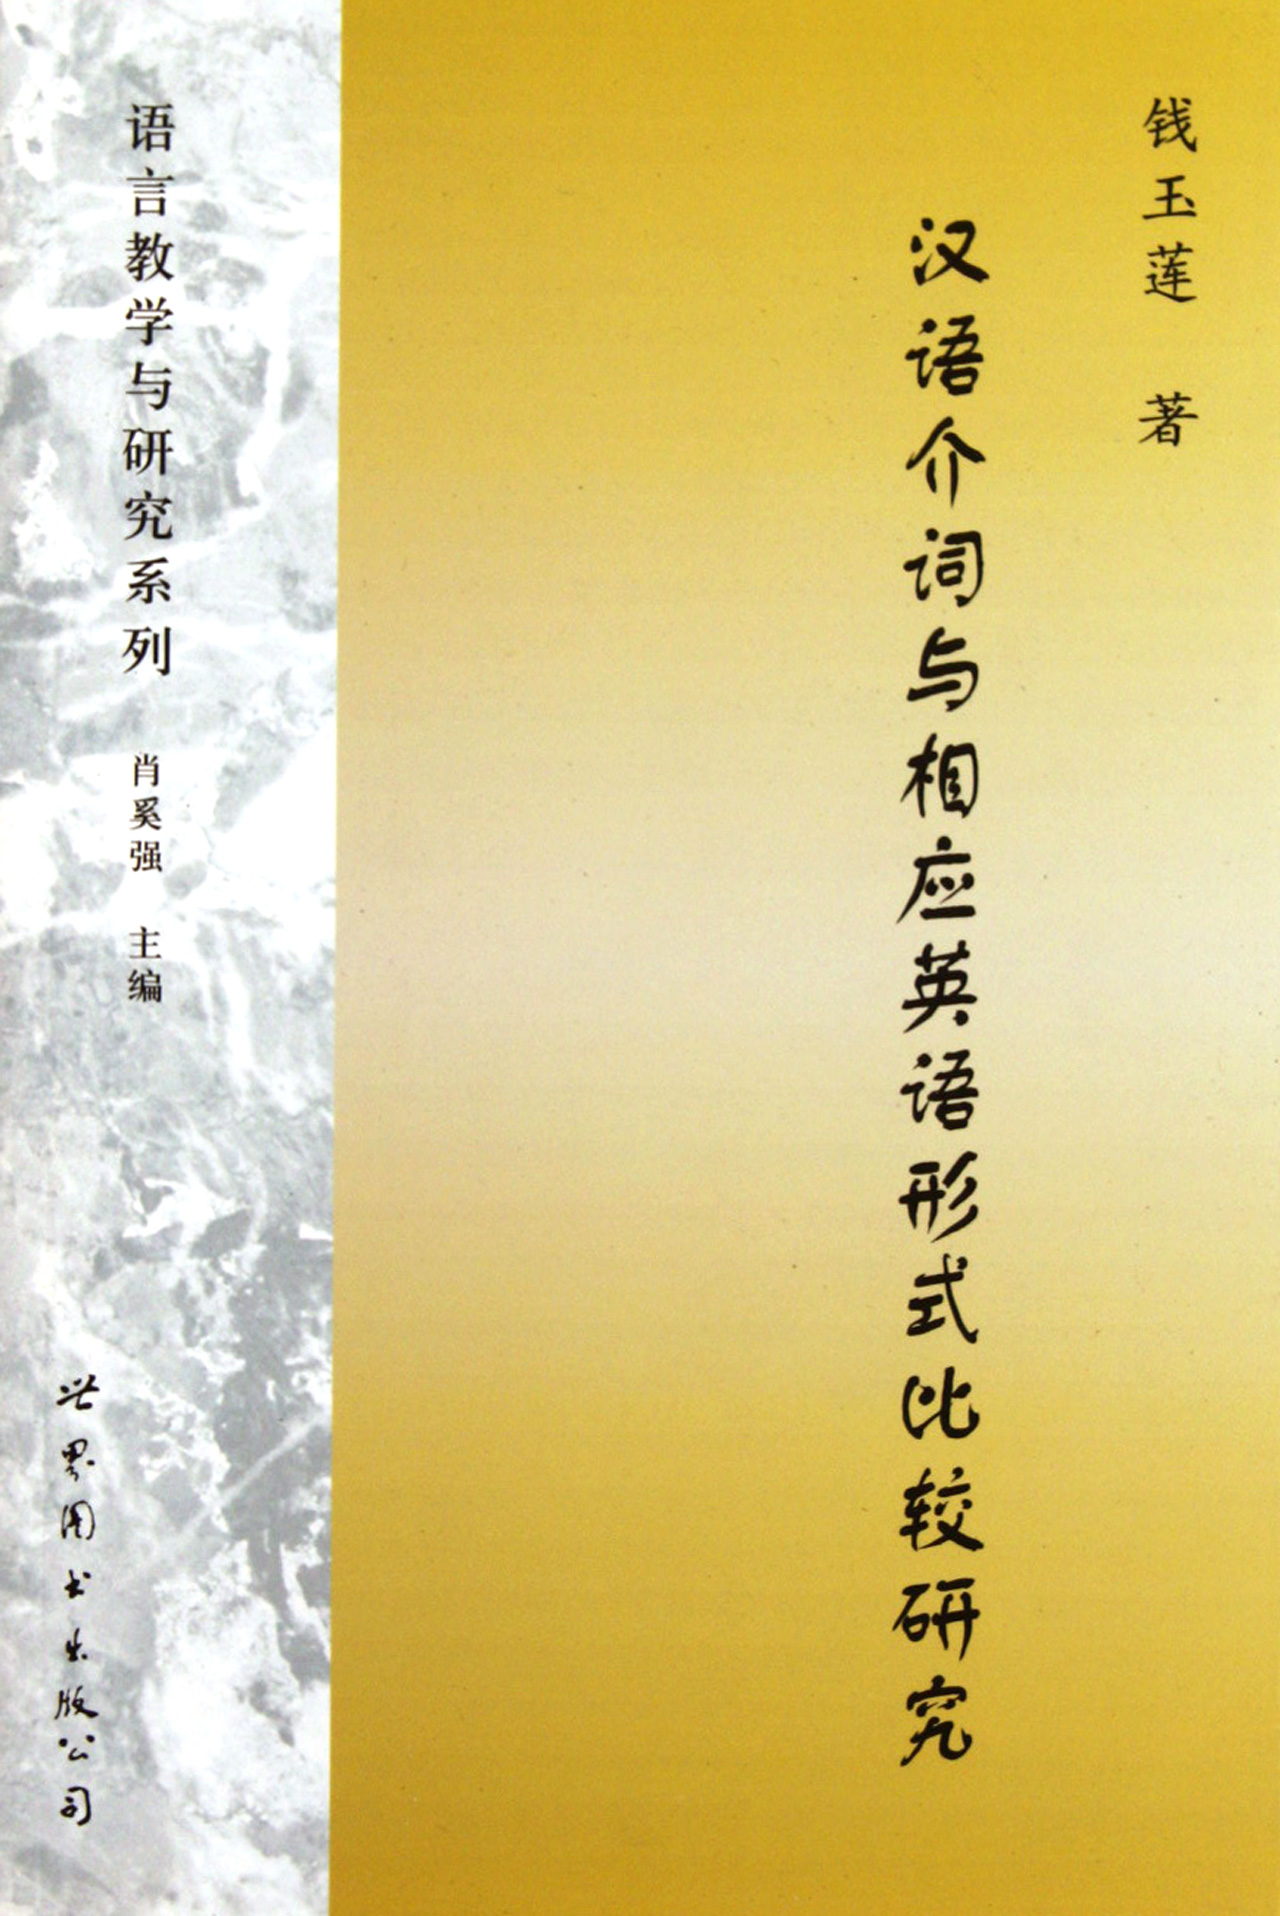 钱玉莲 著
汉语介词与相应英语形式比较研究
语言教学与研究系列 肖奚强 主编
世界图书出版公司